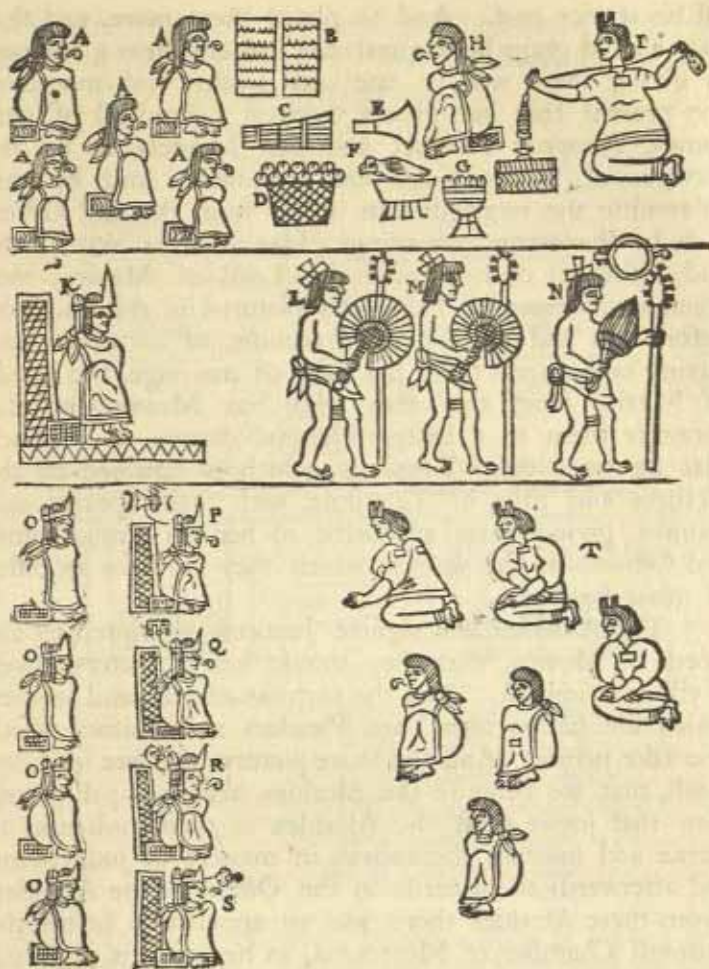 A A B H I
A C E
A A F
D G
K L M N
O P
T
O Q
O R
O S